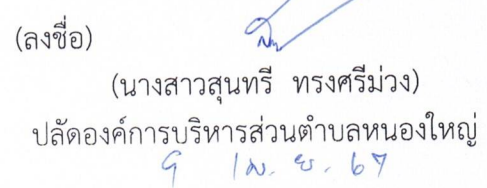 (ลงชื่อ)
(นางสาวสุนทรี ทรงศรีม่วง)
ปลัดองค์การบริหารส่วนตำบลหนองใหญ่
9 เม. ย. 67